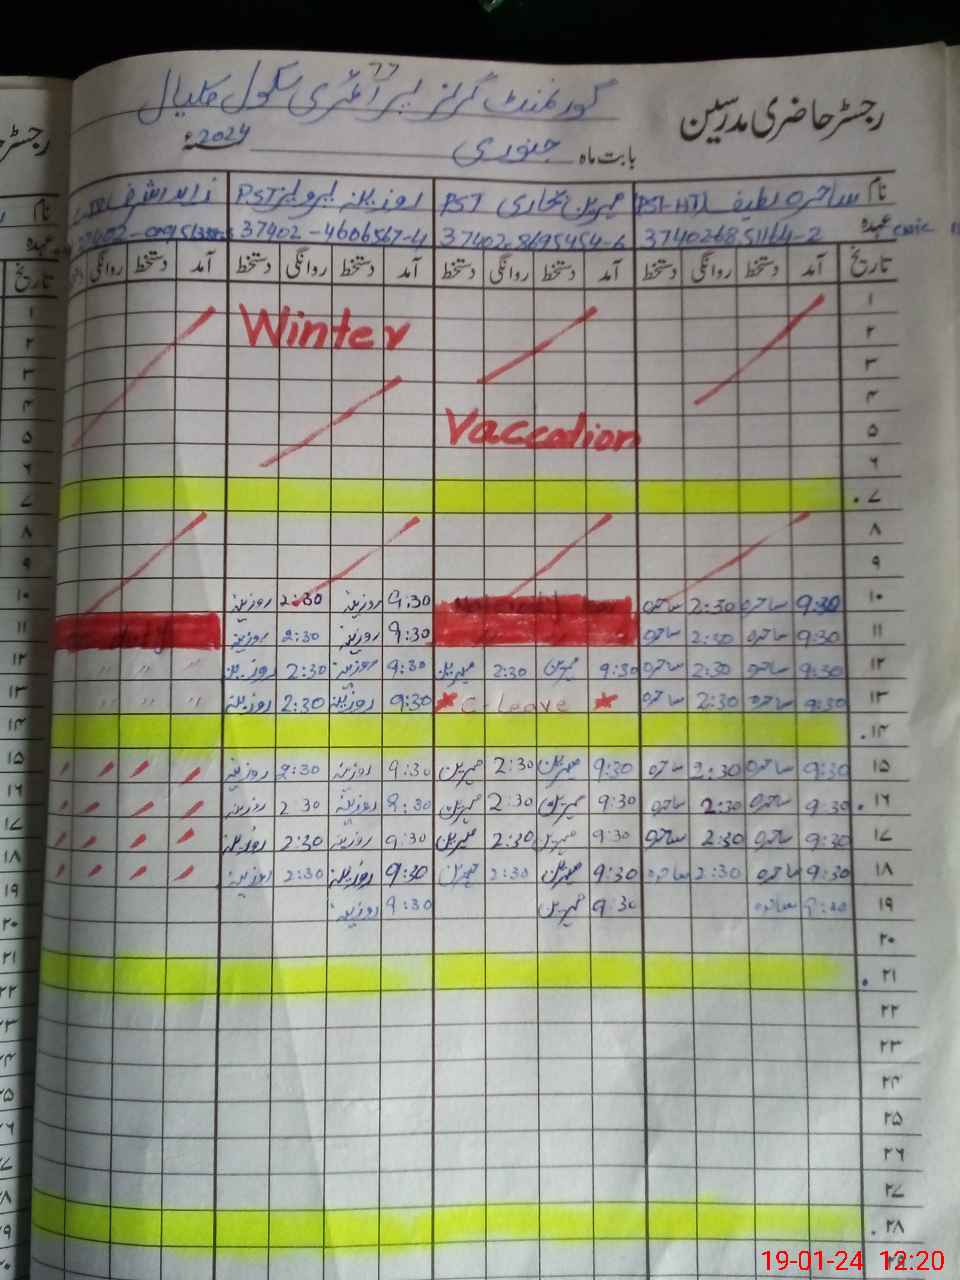 رجسٹر حاضری مدرسین گورنمنٹ گرلز پرائمری سکول
بابت ماہ جنوری 2024
نام ساجرہ لطیف PST-HT مہرین بخاری PST روزینہ پرویز PST زاہدہ اشرف
عہدہ cnic 3740268551164-2 37402-8695454-6 37402-4606567-4
تاریخ آمد دستخط روانگی دستخط آمد دستخط روانگی دستخط آمد دستخط روانگی دستخط آمد دستخط روانگی
۱
۲ Winter
۳
۴
۵ Vaccation
۶
۷
۸
۹
۱۰ 9:30 ساجرہ 2:30 ساجرہ 9:30 روزینہ 2:30 روزینہ
۱۱ 9:30 ساجرہ 2:30 ساجرہ 9:30 روزینہ 2:30 روزینہ
۱۲ 9:30 ساجرہ 2:30 ساجرہ 9:30 مہرین 2:30 مہرین 9:30 روزینہ 2:30 روزینہ " " "
۱۳ 9:30 ساجرہ 2:30 ساجرہ C-Leave 9:30 روزینہ 2:30 روزینہ " " "
۱۴
۱۵ 9:30 ساجرہ 2:30 ساجرہ 9:30 مہرین 2:30 مہرین 9:30 روزینہ 2:30 روزینہ
۱۶ 9:30 ساجرہ 2:30 ساجرہ 9:30 مہرین 2:30 مہرین 9:30 روزینہ 2:30 روزینہ
۱۷ 9:30 ساجرہ 2:30 ساجرہ 9:30 مہرین 2:30 مہرین 9:30 روزینہ 2:30 روزینہ
۱۸ 9:30 ساجرہ 2:30 ساجرہ 9:30 مہرین 2:30 مہرین 9:30 روزینہ 2:30 روزینہ
۱۹ 9:30 ساجرہ 9:30 مہرین 9:30 روزینہ
۲۰
۲۱
۲۲
۲۳
۲۴
۲۵
۲۶
۲۷
۲۸
۲۹
19-01-24 12:20